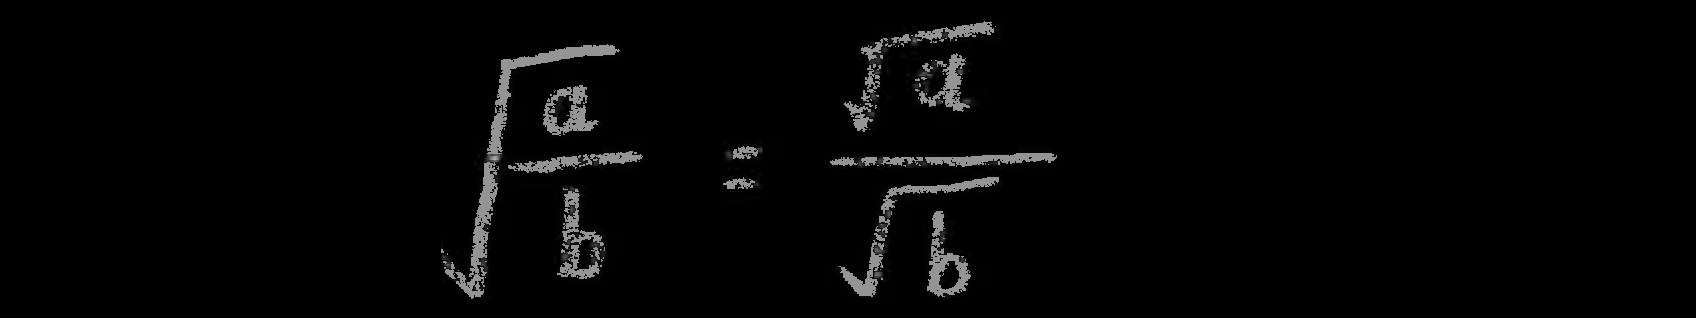 √(a/b) = √a/√b